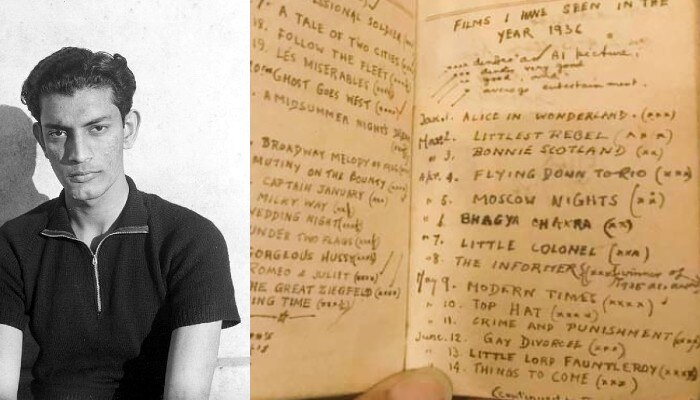 ESSIONAL SOLDIER
A TALE OF TWO CITIES
18. FOLLOW THE FLEET
19. LÉS MISERABLÉS
GHOST GOES WEST (xxxx)
A MIDSUMMER NIGHT'S
BROADWAY MELODY OF
MUTINY ON THE BOUNTY
CAPTAIN JANUARY (xx)
MILKY WAY
WEDDING NIGHT
UNDER TWO FLAGS
GORGEOUS HUSSY
ROMEO & JULIET (xxxx)
HE GREAT ZIEGFELD (xxxx)
ING TIME
FILMS I HAVE SEEN IN THE
YEAR 1936
xxxx denotes an A1 picture.
xxx denotes very good
xx " good
x " average entertainment.
Jan. 1. ALICE IN WONDERLAND. (xxx)
2. LITTLEST REBEL (xxx)
" 3. BONNIE SCOTLAND (xx)
Apr. 4. FLYING DOWN TO RIO (xxx)
" 5. MOSCOW NIGHTS (xx)
" 6. BHAGYA CHAKRA (xx)
" 7. LITTLE COLONEL (xxx)
" 8. THE INFORMER (xxxx) winner of
1935 award
May 9. MODERN TIMES (xxxx)
" 10. TOP HAT (xxxx)
" 11. CRIME AND PUNISHMENT
June. 12. GAY DIVORCEE (xxx)
" 13. LITTLE LORD FAUNTLEROY (xxxx)
" 14. THINGS TO COME (xxx)
(continued